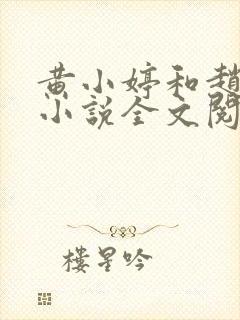 黄小婷和趙
小説全文閱
樓星吟